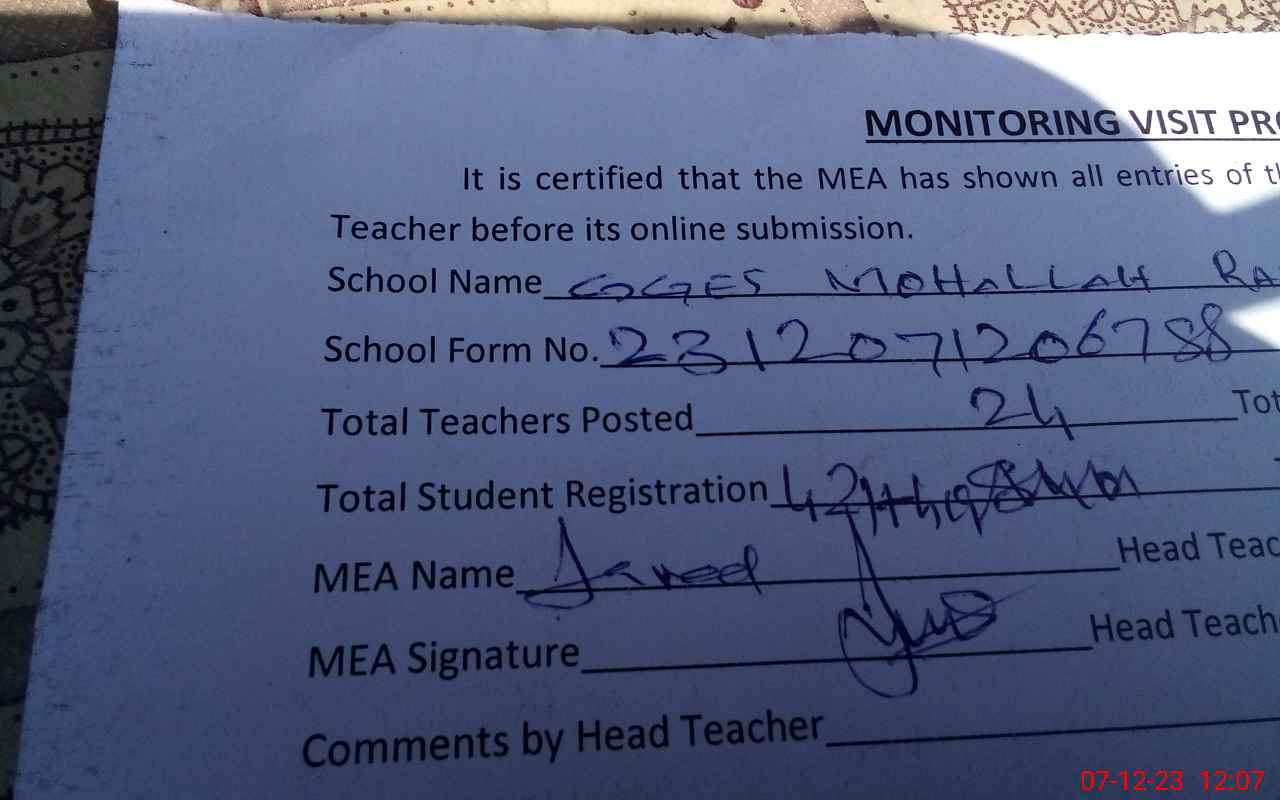 MONITORING VISIT PRO
It is certified that the MEA has shown all entries of th
Teacher before its online submission.
School Name GGES MOHALLAH RA
School Form No. 2312071206788
Total Teachers Posted 24 Tot
Total Student Registration
MEA Name Javed Head Teac
MEA Signature Head Teach
Comments by Head Teacher
07-12-23 12:07